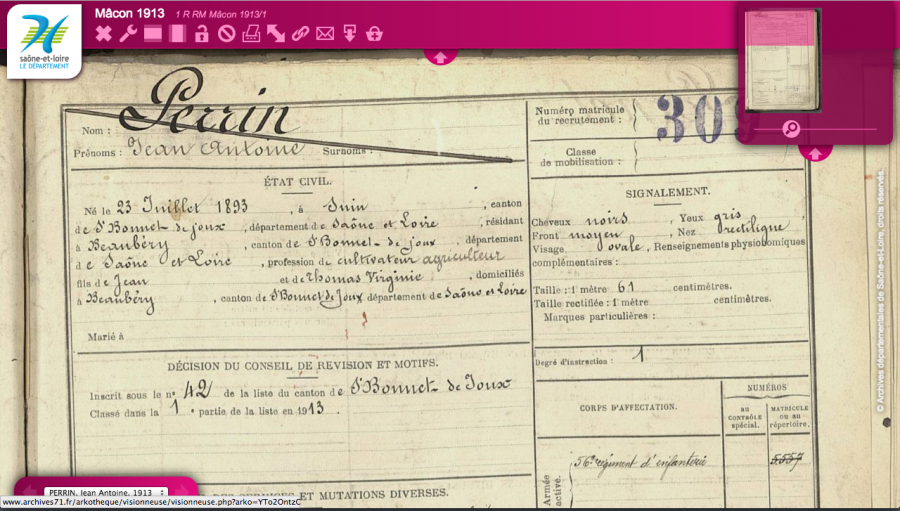 saône-et-loire
LE DÉPARTEMENT
Mâcon 1913 1 R RM Mâcon 1913/1
Nom : Perrin
Prénoms : Jean Antoine Surnoms :
Numéro matricule
du recrutement :
309
Classe
de mobilisation :
ÉTAT CIVIL.
Né le 23 Juillet 1893, à Suin, canton
de St Bonnet de joux, département de Saône et Loire, résidant
à Beaubéry, canton de St Bonnet de joux, département
de Saône et Loire, profession de cultivateur agriculteur
fils de Jean et de Thomas Virginie, domiciliés
à Beaubéry, canton de St Bonnet de Joux département de Saône et Loire
Marié à
SIGNALEMENT.
Cheveux noirs, Yeux gris,
Front moyen, Nez rectiligne
Visage ovale, Renseignements physiologiques
complémentaires :
Taille : 1 mètre 61 centimètres.
Taille rectifiée : 1 mètre centimètres.
Marques particulières :
Degré d'instruction : 1
DÉCISION DU CONSEIL DE REVISION ET MOTIFS.
Inscrit sous le n° 42 de la liste du canton de St Bonnet de Joux
Classé dans la 1 e partie de la liste en 1913.
CORPS D'AFFECTATION.
NUMÉROS
AU
CONTRÔLE
spécial.
MATRICULE
OU AU
répertoire.
Armée
active.
56e régiment d'infanterie
ET MUTATIONS DIVERSES.
PERRIN, Jean Antoine, 1913
www.archives71.fr/arkotheque/visionneuse/visionneuse.php?arko=YTo2OntzO
© Archives départementales de Saône-et-Loire, droits réservés.